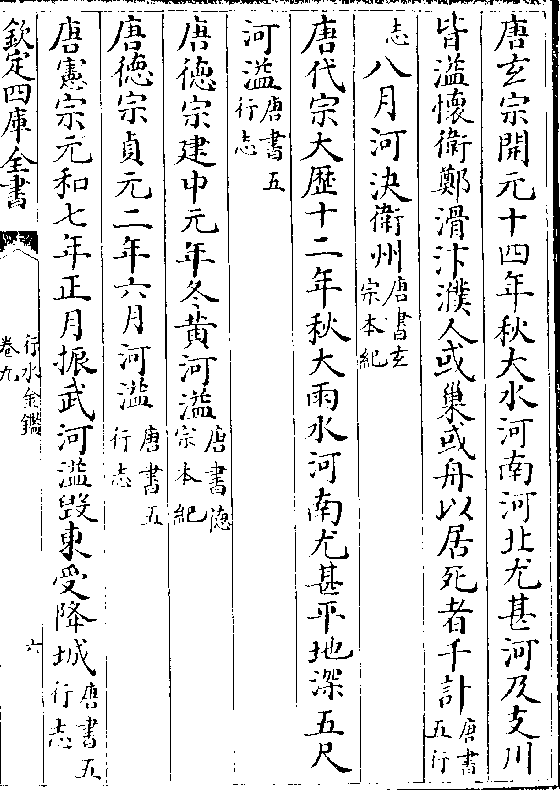 唐玄宗開元十四年秋大水河南河北尤甚河及支川
皆溢懷衛鄭滑汴濮人或巢或舟以居死者千計唐書五行
志八月河決衛州唐書玄宗本紀
唐代宗大歴十二年秋大雨水河南尤甚平地深五尺
河溢唐書五行志
唐德宗建中元年冬黄河溢唐書德宗本紀
唐德宗貞元二年六月河溢唐書五行志
唐憲宗元和七年正月振武河溢毁東受降城唐書五行志
欽定四庫全書
行水金鑑
卷九
六